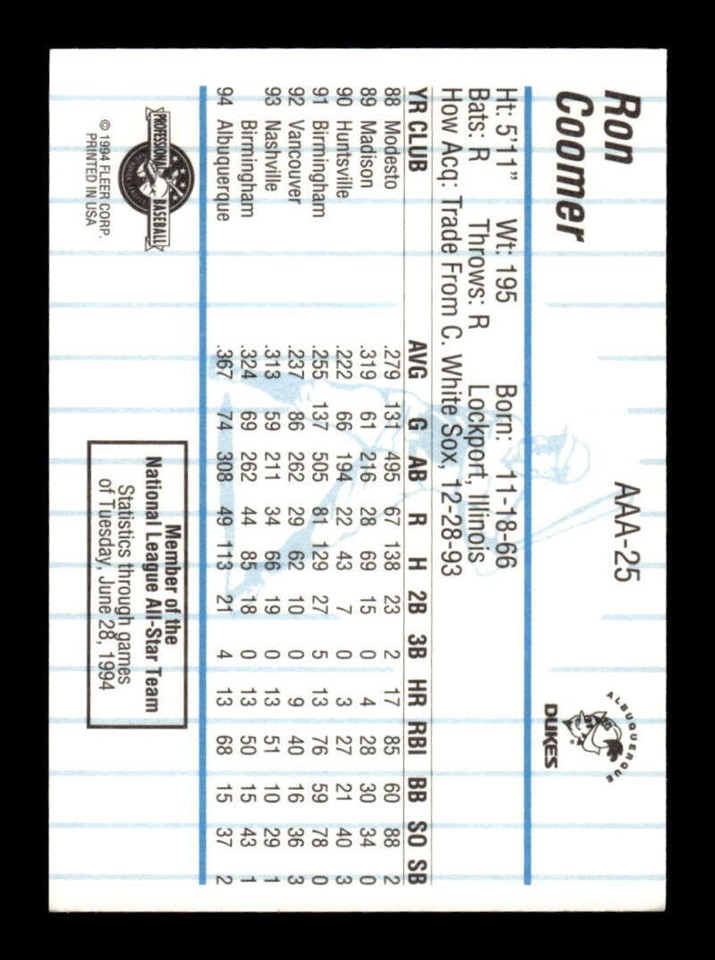 Ron
Coomer
AAA-25
ALBUQUERQUE
DUKES
Ht: 5'11" Wt: 195 Born: 11-18-66
Bats: R Throws: R Lockport, Illinois
How Acq: Trade From C. White Sox, 12-28-93
YR CLUB AVG G AB R H 2B 3B HR RBI BB SO SB
88 Modesto .279 131 495 67 138 23 2 17 85 60 88 2
89 Madison .319 61 216 28 69 15 0 4 28 30 34 0
90 Huntsville .222 66 194 22 43 7 0 3 27 21 40 3
91 Birmingham .255 137 505 81 129 27 5 13 76 59 78 0
92 Vancouver .237 86 262 29 62 10 0 9 40 16 36 3
93 Nashville .313 59 211 34 66 19 0 13 51 10 29 1
Birmingham .324 69 262 44 85 18 0 13 50 15 43 1
94 Albuquerque .367 74 308 49 113 21 4 13 68 15 37 2
PROFESSIONAL BASEBALL
© 1994 FLEER CORP.
PRINTED IN USA
Member of the
National League All-Star Team
Statistics through games
of Tuesday, June 28, 1994